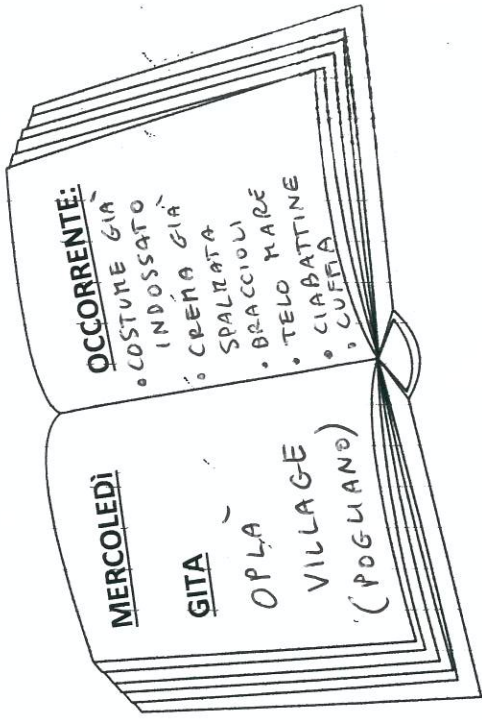 MERCOLEDÌ
GITA
OPLÀ
VILLAGE
(POGLIANO)
OCCORRENTE:
• COSTUME GIÀ
INDOSSATO
• CREMA GIÀ
SPALMATA
• BRACCIOLI
• TELO MARE
• CIABATTINE
• CUFFIA